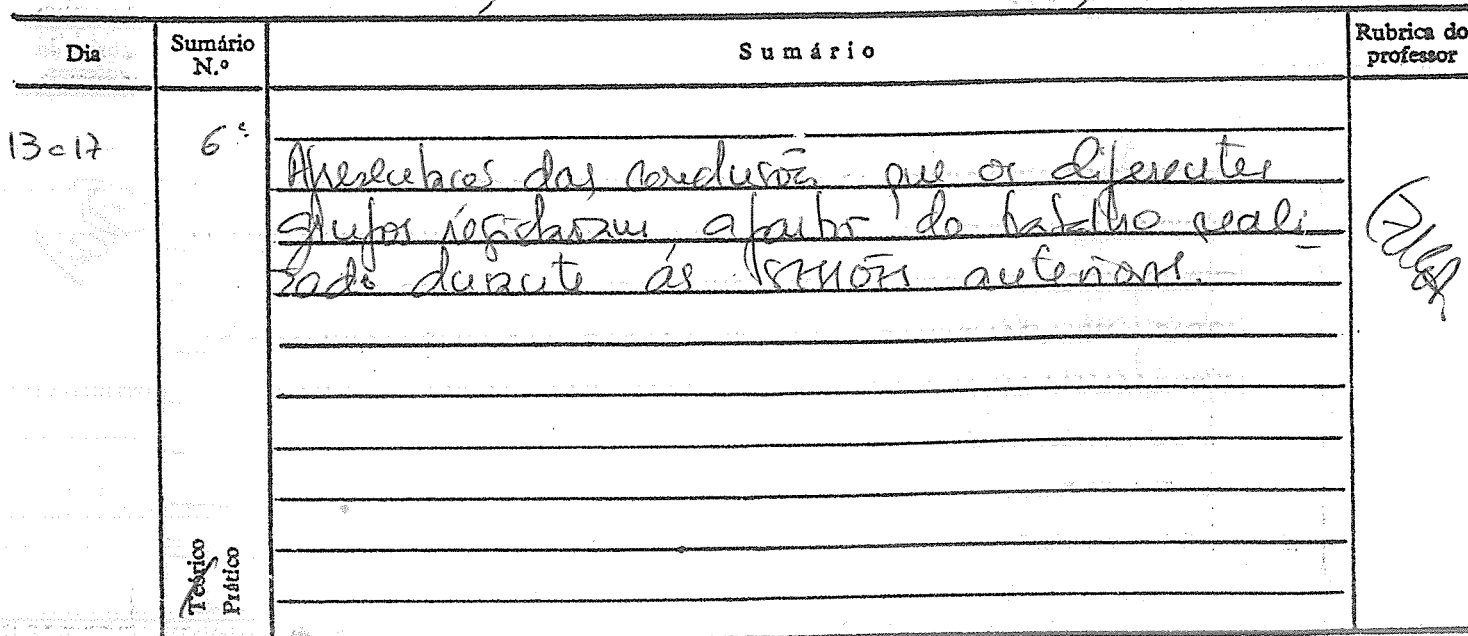 Dia
Sumário
N.º
Sumário
Rubrica do
professor
13 e 17
6ª
Apresentacao das conclusões que os diferentes
grupos registaram a partir do trabalho reali-
zado durante ás sessões anteriores.
Teórico
Prático